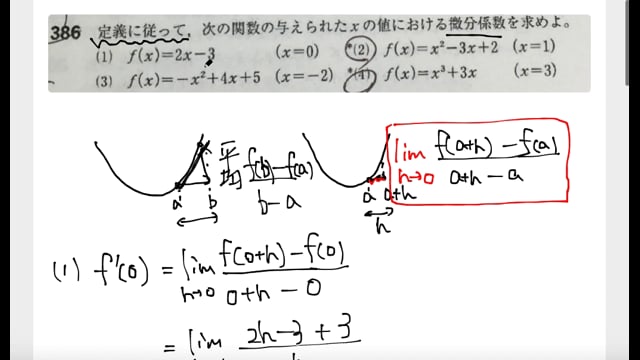 386 定義に従って，次の関数の与えられた x の値における微分係数を求めよ。
(1) f(x)=2x−3 (x=0) *(2) f(x)=x²−3x+2 (x=1)
(3) f(x)=−x²+4x+5 (x=−2) *(4) f(x)=x³+3x (x=3)
平均 f(b)−f(a) / b−a
a b
a a+h
h
lim h→0 f(a+h)−f(a) / a+h−a
(1) f'(0) = lim h→0 f(0+h)−f(0) / 0+h−0
= lim 2h−3+3